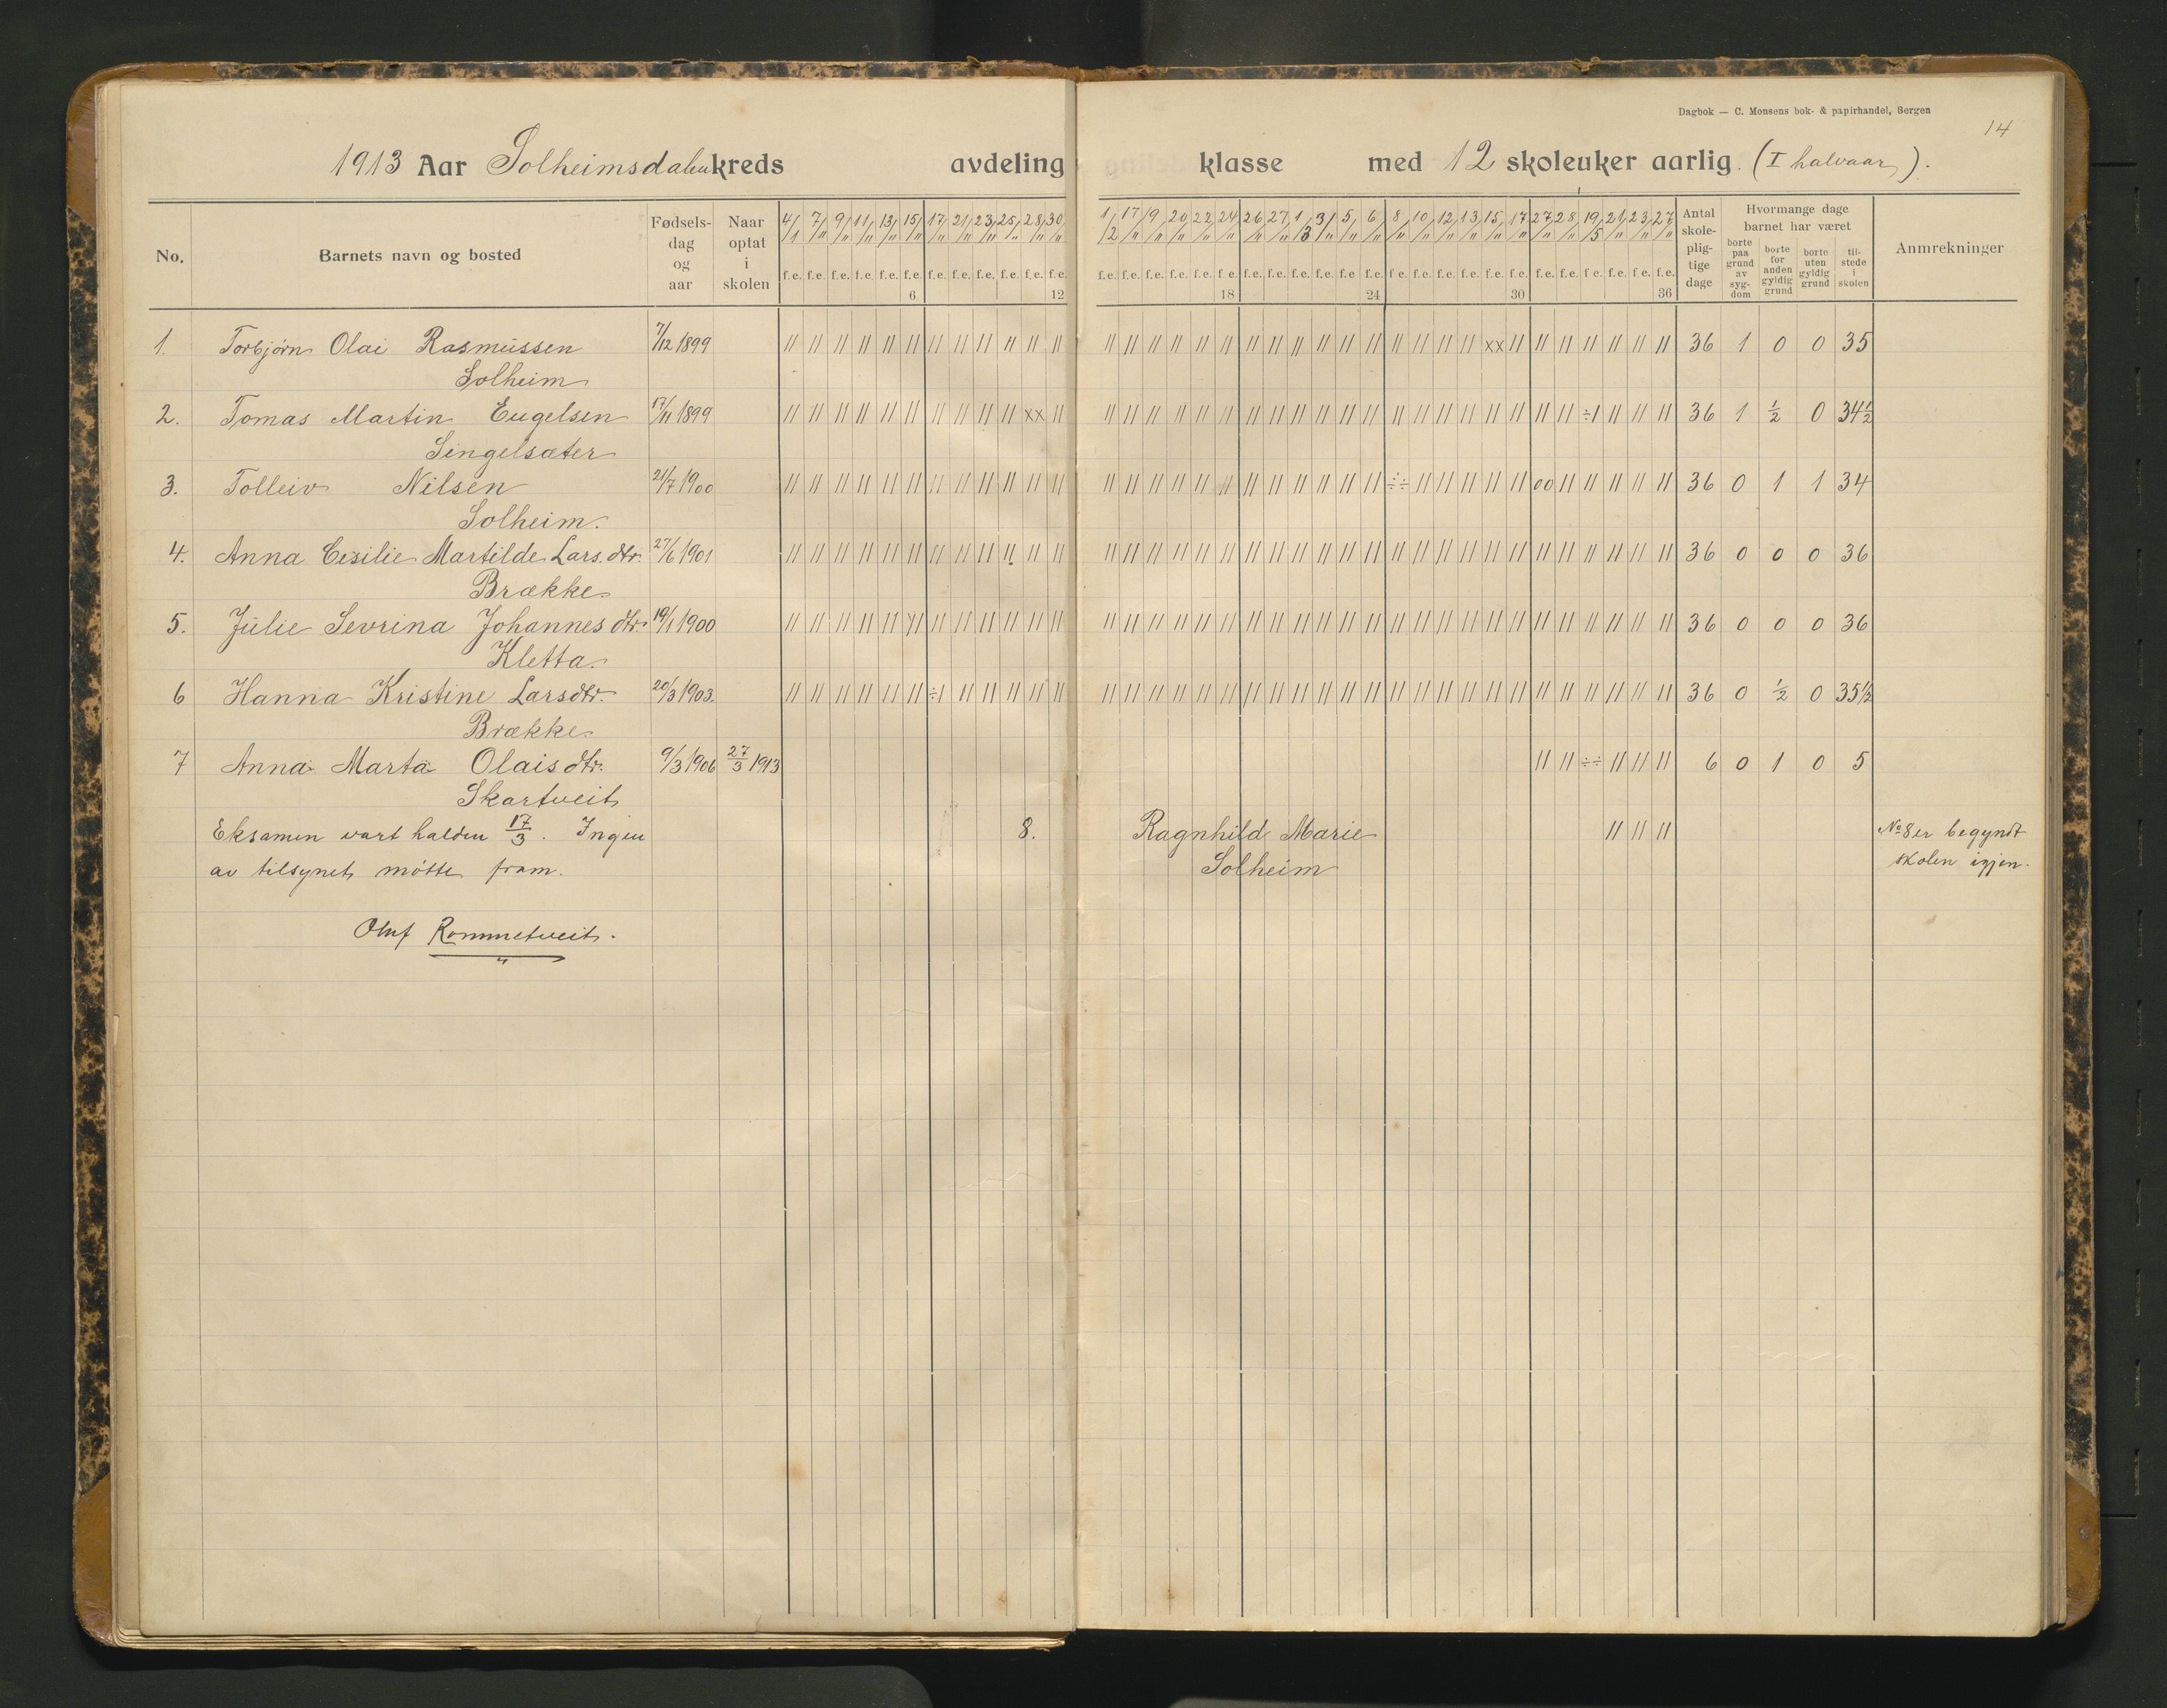 Dagbok — C. Monsens bok- & papirhandel, Bergen
14
1913 Aar Solheimsdalenkreds avdeling klasse med 12 skoleuker aarlig. (I halvaar).
No. Barnets navn og bosted Fødsels-dag og aar Naar optat i skolen 4/1 7/" 9/" 11/" 13/" 15/" 17/" 21/" 23/" 25/" 28/" 30/" 1/2 17/" 19/" 20/" 22/" 24/" 26/" 27/" 1/3 3/" 5/" 6/" 8/" 10/" 12/" 13/" 15/" 17/" 27/" 28/" 19/5 21/" 23/" 27/" Antal skole-plig-tige dage Hvormange dage barnet har været Anmrekninger
borte paa grund av syg-dom borte for anden gyldig grund borte uten gyldig grund til-stede i skolen
f.e. f.e. f.e. f.e. f.e. f.e. f.e. f.e. f.e. f.e. f.e. f.e. f.e. f.e. f.e. f.e. f.e. f.e. f.e. f.e. f.e. f.e. f.e. f.e. f.e. f.e. f.e. f.e. f.e. f.e. f.e. f.e. f.e. f.e. f.e. f.e.
6 12 18 24 30 36
1. Torbjørn Olai Rasmussen 7/12 1899 // // // // // // // // // // // // // // // // // // // // // // // // // // // // xx // // // // // // // 36 1 0 0 35
Solheim
2. Tomas Martin Engelsen 17/11 1899 // // // // // // // // // // xx // // // // // // // // // // // // // // // // // // // // // ÷/ // // // 36 1 1/2 0 34 1/2
Singelsæter
3. Tolleiv Nilsen 21/7 1900 // // // // // // // // // // // // // // // // // // // // // // // // ÷÷ // // // // // 00 // // // // // 36 0 1 1 34
Solheim.
4. Anna Cesilie Martilde Lars.dtr. 27/6 1901 // // // // // // // // // // // // // // // // // // // // // // // // // // // // // // // // // // // // 36 0 0 0 36
Brække.
5. Julie Sevrina Johannes dtr. 19/1 1900 // // // // // // // // // // // // // // // // // // // // // // // // // // // // // // // // // // // // 36 0 0 0 36
Kletta.
6 Hanna Kristine Larsdtr. 20/3 1903. // // // // // // ÷/ // // // // // // // // // // // // // // // // // // // // // // // // // // // // // 36 0 1/2 0 35 1/2
Brække.
7 Anna Marta Olaisdtr. 9/3 1906 27/3 1913 // // ÷÷ // // // 6 0 1 0 5
Skartveit
Eksamen vart halden 17/3. Ingen 8. Ragnhild Marie // // // No 8 er begyndt
av tilsynet møtte fram. Solheim skolen igjen.
Oluf Rommetveit.